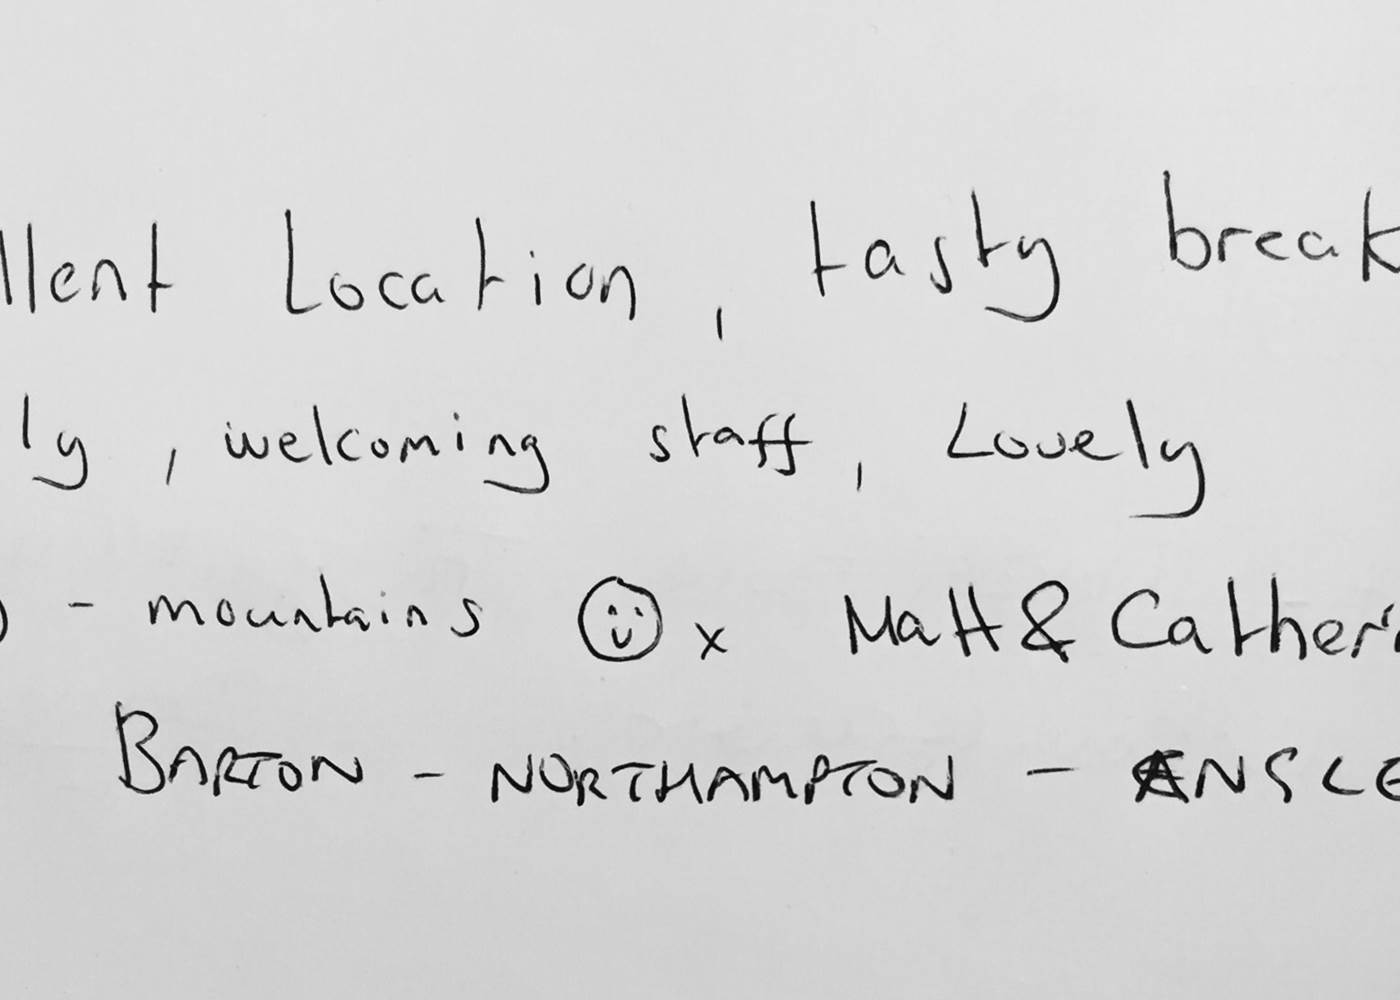 llent Location, tasty break
ly, welcoming staff, Lovely
- mountains ☺ x Matt & Cather
BARTON - NORTHAMPTON - ENSLE